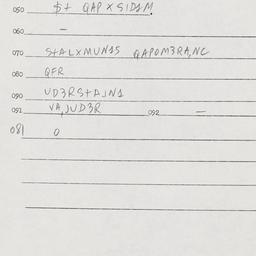 050 $+ QAP X SID1M.
060 –
070 S+ALXMUN15 QAPOM3RA,NC
080 QFR
090 UD3RS+AJN1
091 VA,JUD3R 092 =
081 0